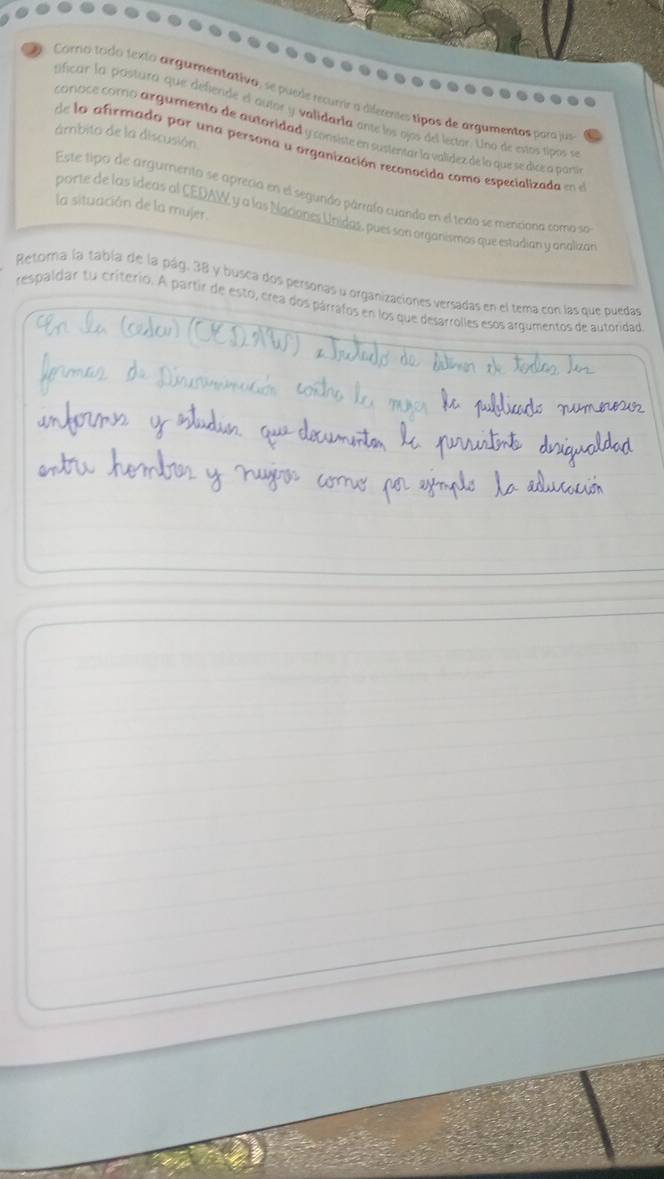 Como todo texto argumentativo, se puede recurrir a diferentes tipos de argumentos para jus-
tificar la postura que defiende el autor y validarla ante los ojos del lector. Uno de estos tipos se
conoce como argumento de autoridad y consiste en sustentar la validez de lo que se dice a partir
de lo afirmado por una persona u organización reconocida como especializada en el
ámbito de la discusión.
Este tipo de argumento se aprecia en el segundo párrafo cuando en el texto se menciona como so-
porte de las ideas al CEDAW y a las Naciones Unidas, pues son organismos que estudian y analizan
la situación de la mujer.
Retoma la tabla de la pág. 38 y busca dos personas u organizaciones versadas en el tema con las que puedas
respaldar tu criterio. A partir de esto, crea dos párrafos en los que desarrolles esos argumentos de autoridad.
en la (cedau) (CEDAW) Tratado de de todas las
formas de Discriminación contra la mujer ha publicado numerosos
informes y estudios que documentan la persistente desigualdad
entre hombres y mujeres como por ejemplo la educación